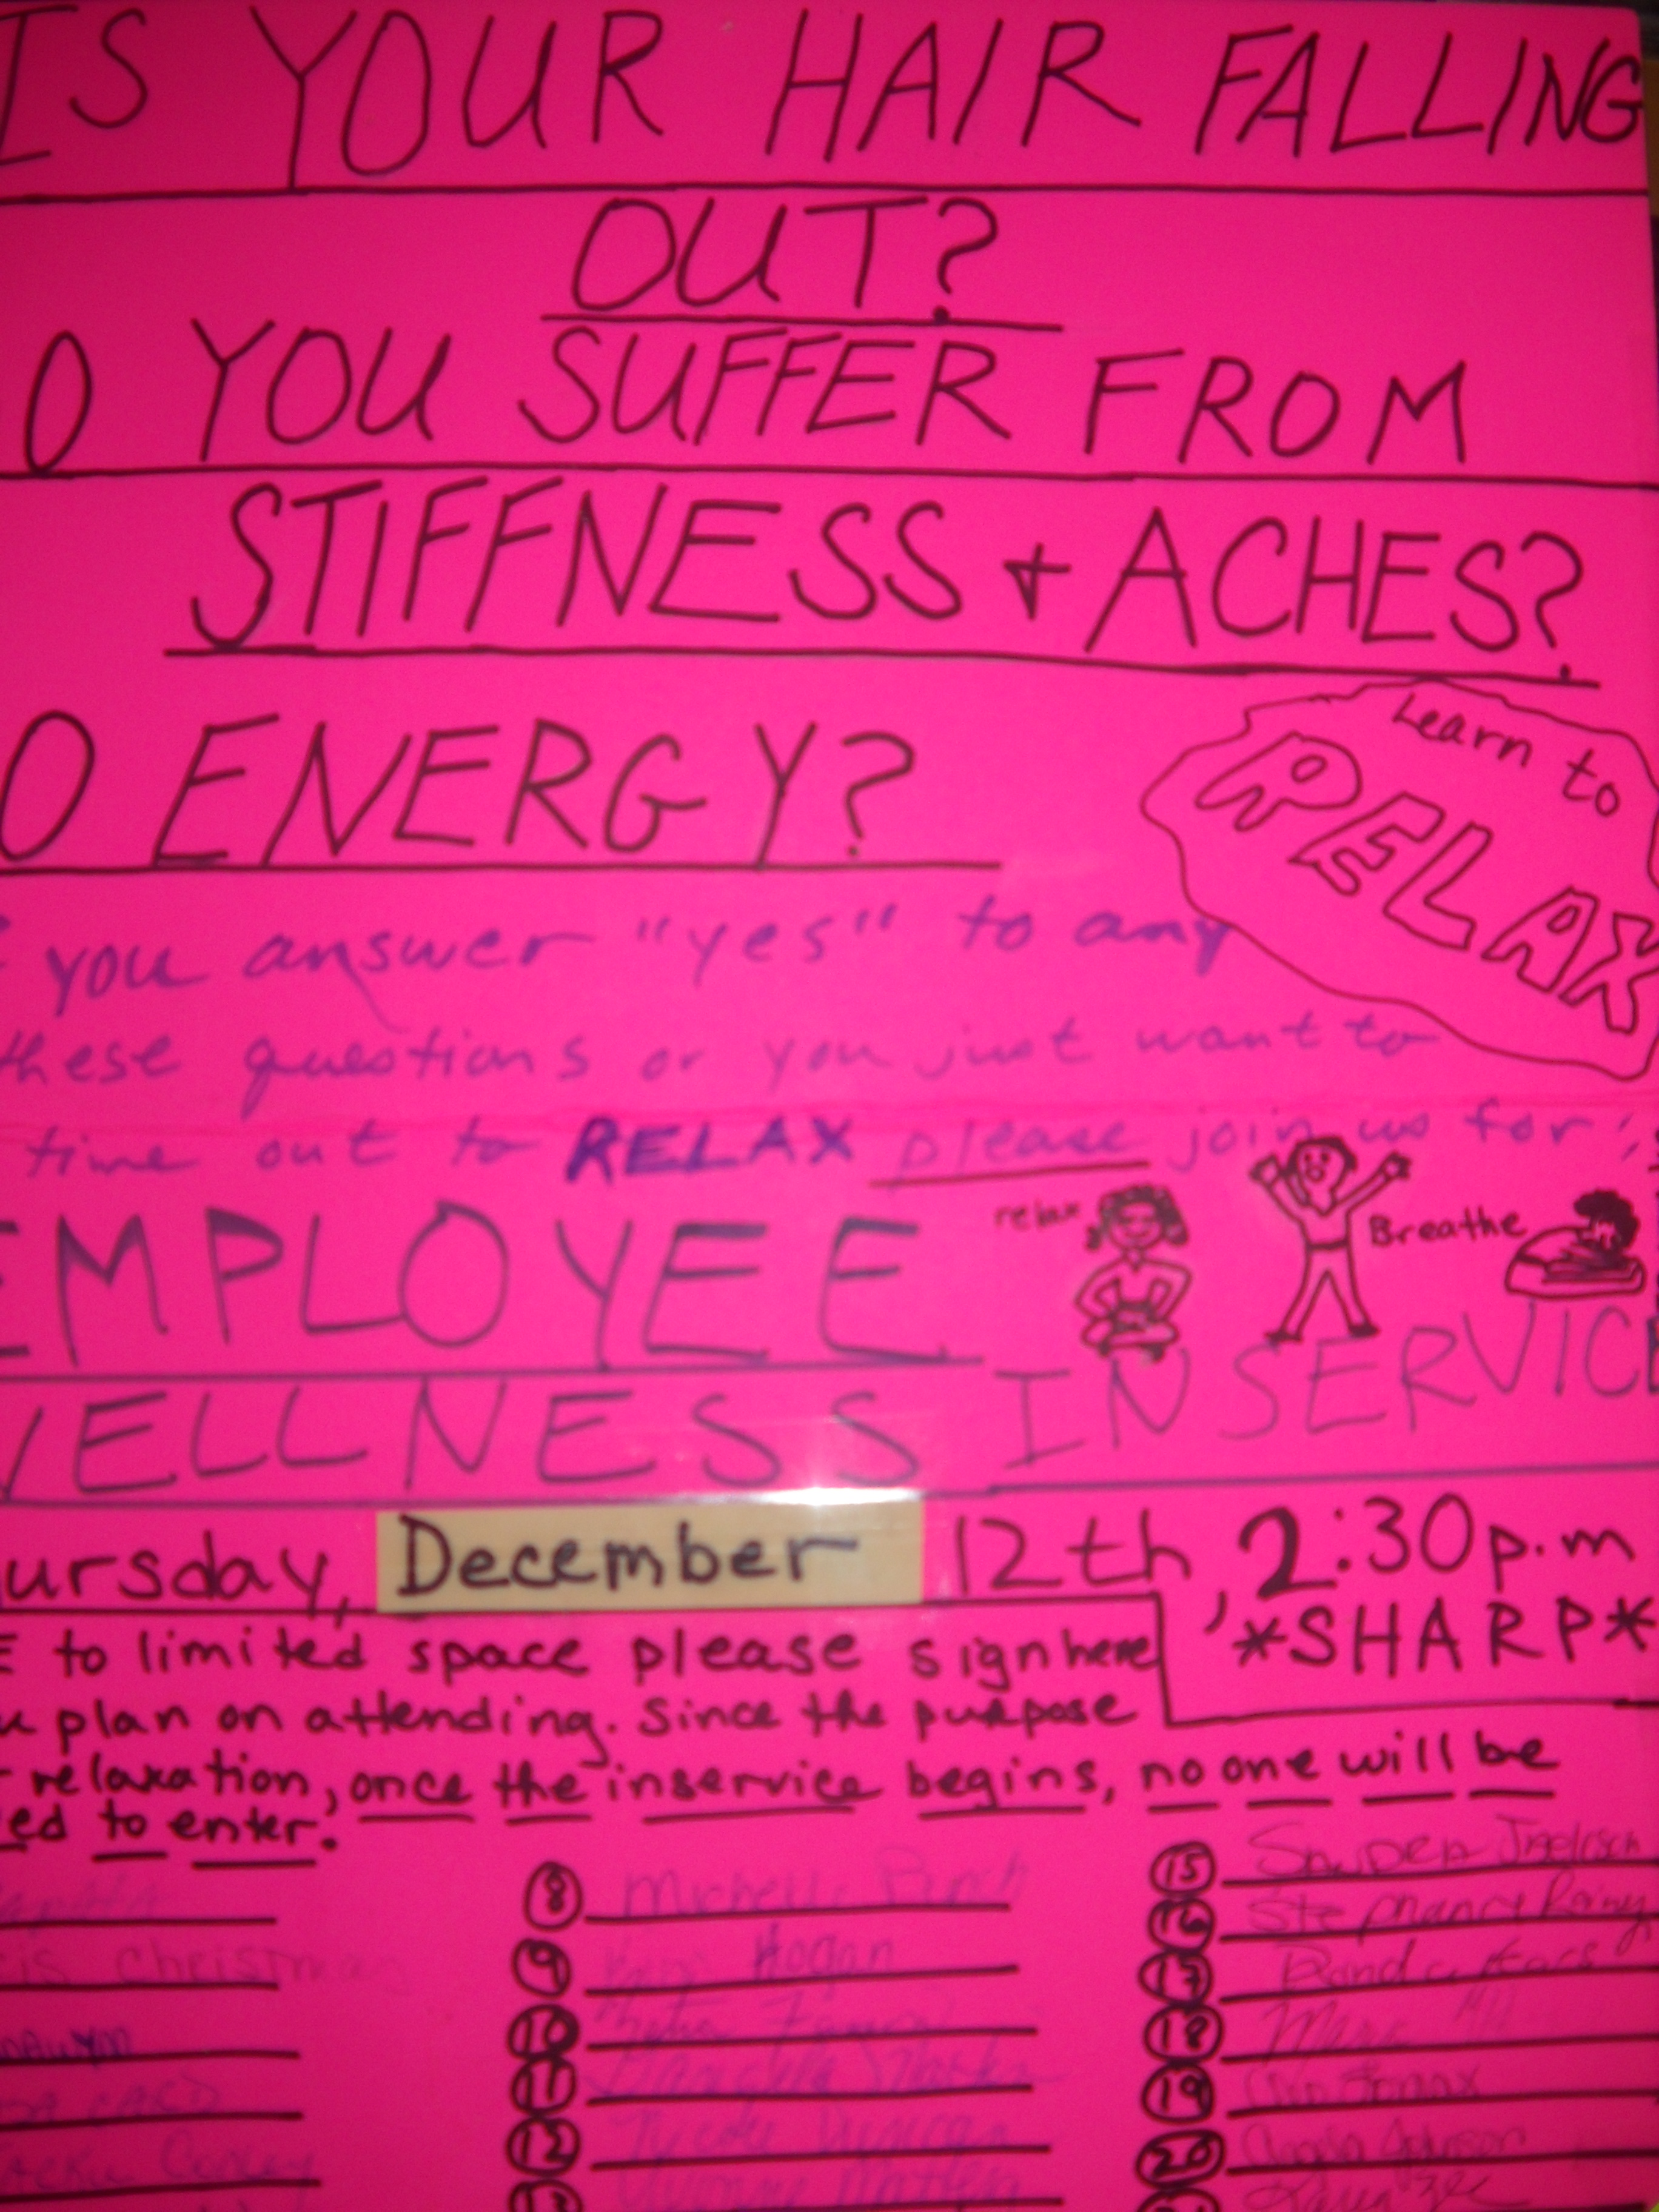 IS YOUR HAIR FALLING
OUT?
O YOU SUFFER FROM
STIFFNESS + ACHES?
O ENERGY?
Learn to
RELAX
you answer "yes" to any
these questions or you just want to
time out to RELAX please join us for:
EMPLOYEE
relax
Breathe
WELLNESS INSERVICE
ursday, December 12th, 2:30 p.m
*SHARP*
E to limited space please sign here
u plan on attending. Since the purpose
r relaxation, once the inservice begins, no one will be
ed to enter.
is Christmas
CARD
8 Michelle
9 Hogan
10
11
12
15
16
17
18
19
20 Angela Johnson